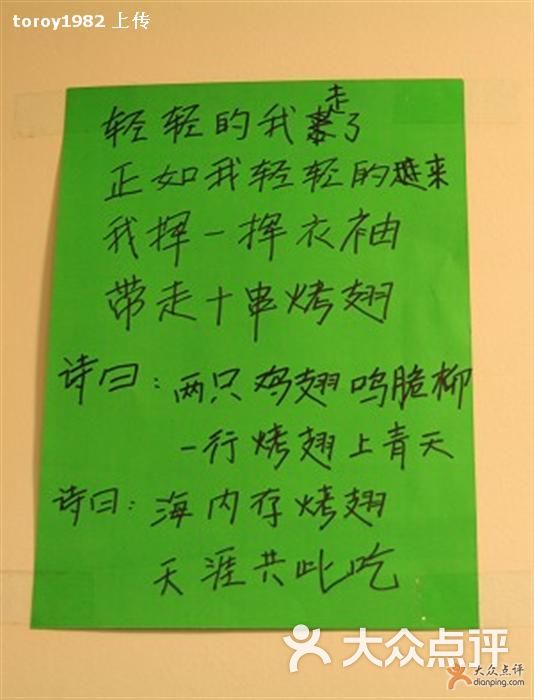 toroy1982 上传
轻轻的我走了
正如我轻轻的进来
我挥一挥衣袖
带走十串烤翅
诗曰：两只鸡翅鸣脆柳
一行烤翅上青天
诗曰：海内存烤翅
天涯共此吃
大众点评
大众点评
dianping.com